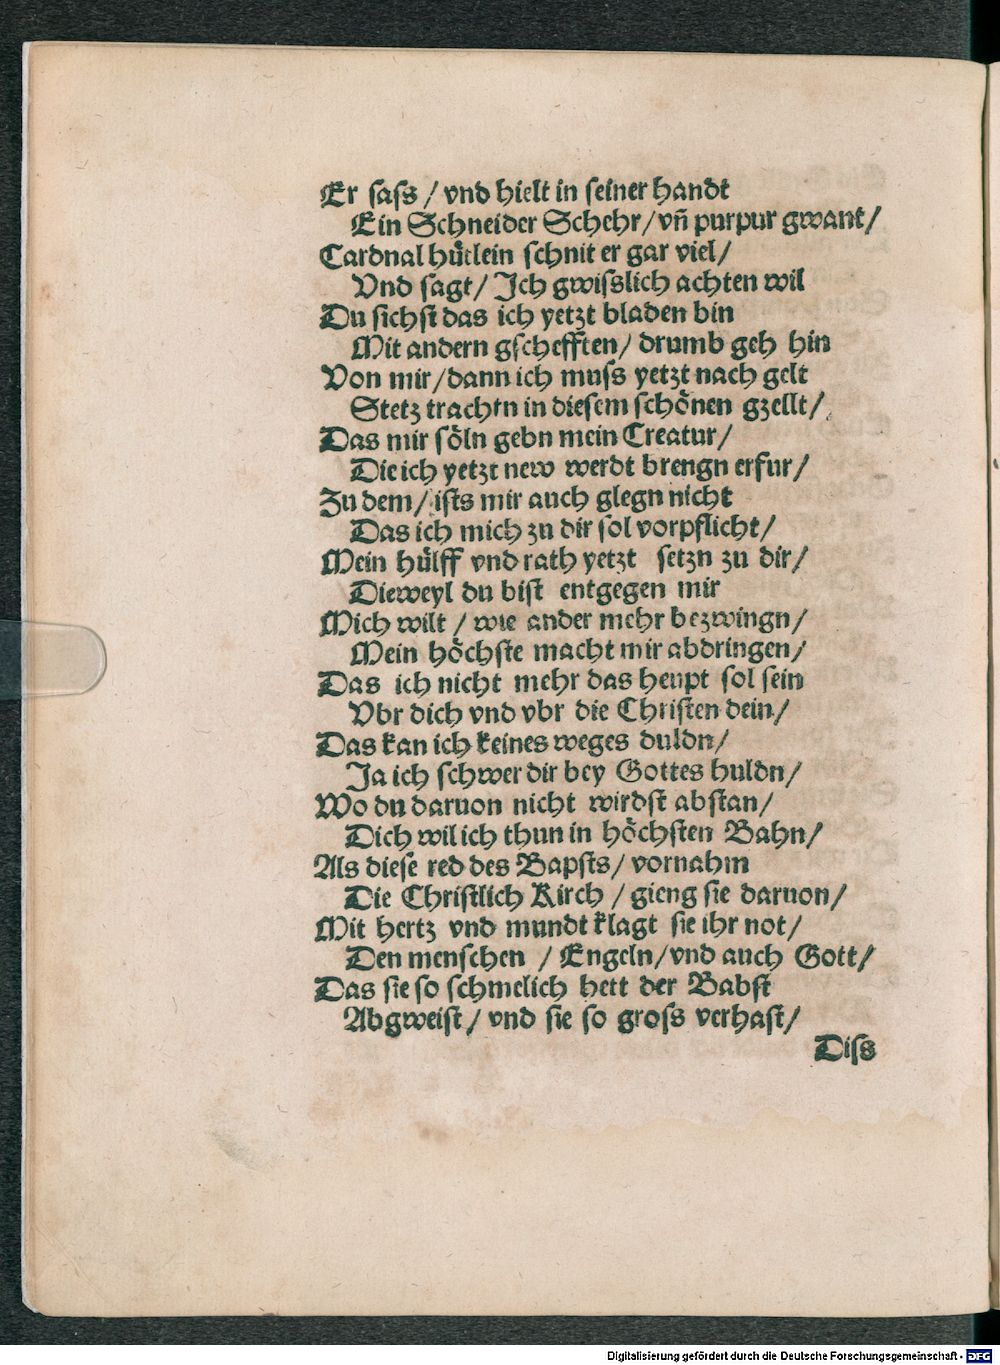 Er saſs / vnd hielt in ſeiner handt
Ein Schneider Schehr / vñ purpur gwant /
Cardnal huͤtlein ſchnit er gar viel /
Vnd ſagt / Ich gwiſslich achten wil
Du ſichſt das ich yetzt bladen bin
Mit andern gſchefften / drumb geh hin
Von mir / dann ich muſs yetzt nach gelt
Stetz trachtn in dieſem ſchoͤnen gzellt /
Das mir ſoͤln gebn mein Creatur /
Die ich yetzt new werdt brengn erfur /
Zu dem / iſts mir auch glegn nicht
Das ich mich zu dir ſol vorpflicht /
Mein huͤlff vnd rath yetzt ſetzn zu dir /
Dieweyl du biſt entgegen mir
Mich wilt / wie ander mehr bezwingn /
Mein hoͤchſte macht mir abdringen /
Das ich nicht mehr das heupt ſol ſein
Vbr dich vnd vbr die Chriſten dein /
Das kan ich keines weges duldn /
Ja ich ſchwer dir bey Gottes huldn /
Wo du daruon nicht wirdſt abſtan /
Dich wil ich thun in hoͤchſten Bahn /
Als dieſe red des Bapſts / vornahm
Die Chriſtlich Kirch / gieng ſie daruon /
Mit hertz vnd mundt klagt ſie ihr not /
Den menſchen / Engeln / vnd auch Gott /
Das ſie ſo ſchmelich hett der Babſt
Abgweiſt / vnd ſie ſo groſs verhaſt /
Diſs
Digitalisierung gefördert durch die Deutsche Forschungsgemeinschaft - DFG